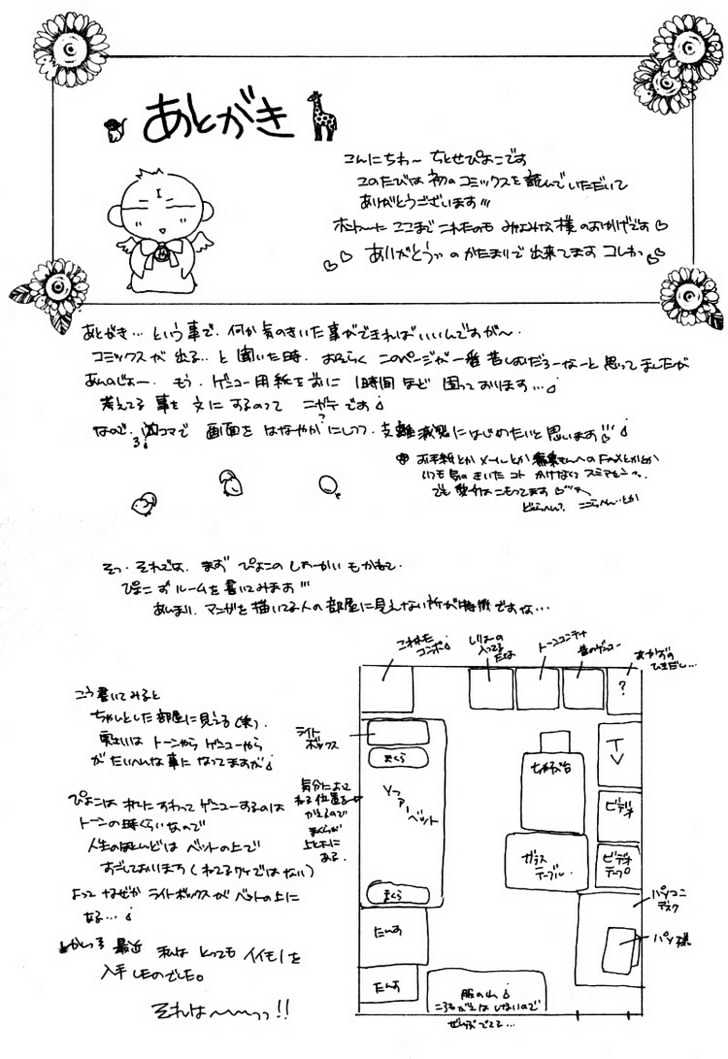 あとがき
こんにちわ〜 ちとせぴよこです
このたびは 初のコミックスを 読んでいただいて
ありがとうございます!!!
ホントーに ここまで これたのも みなみな様 のおかげです♡
ありがとうッ のかたまりで 出来てます コレわ
あとがき… という事で、何か 気のきいた 事ができれば いいんですが〜・
コミックスが 出る‥ と 聞いた時、おそらく このページが 一番 苦しむだろーなーと 思って ましたが
あんのじょー、 もう、ゲンコー用紙を前に 1時間 ほど 困っております…
考えてる 事を 文に するのって ニガテです
なので、 コマで 画面を はなやか?にしつつ、支離滅裂にはじめたいと思います!!!
お手紙とか メールとか 編集さんへの FAXとかとか
いつも 気の きいた コト かけない スミマセンっ、
でも 愛情は こもってます♡
どのへん? このへん…とか
そっ・それでは、まず ぴよこの しょーかい もかねて、
ぴよこ ず ルームを 書いてみます!!!
あんまり、マンガを 描いてる人の 部屋に 見えない 所が 特徴 ですな…
こう書いてみると
ちゃんとした 部屋に 見える(笑)、
実さいは トーンやら ゲンコーやら
が たいへんな事に なってますが
ぴよこは 机に すわって ゲンコーするのは
トーンの時くらいなので
人生のほとんどは ベットの上で
すごしております (ねてるワケではない)
よって なぜか ライトボックスが ベットの上に
ある…
最近 私は とっても イイモノを
入手 したのでした。
それは〜〜〜っっ!!
これわた
コンポ
しりょーの
入ってる
たな
トーンコンテナ
昔のゲンコー
あかずの
ひきだし…
?
ライト
ボックス
まくら
ソファーベット
気分によって
ねる位置を
かえるので
まくらが
上と下に
ある。
まくら
ちゃぶ台
ガラス
テーブル
TV
ビデオ
ビデオ
テープ
パソコン
デスク
パソ様
たんす
たんす
服の山
ころもがえは しないので
ぜんぶでてる…